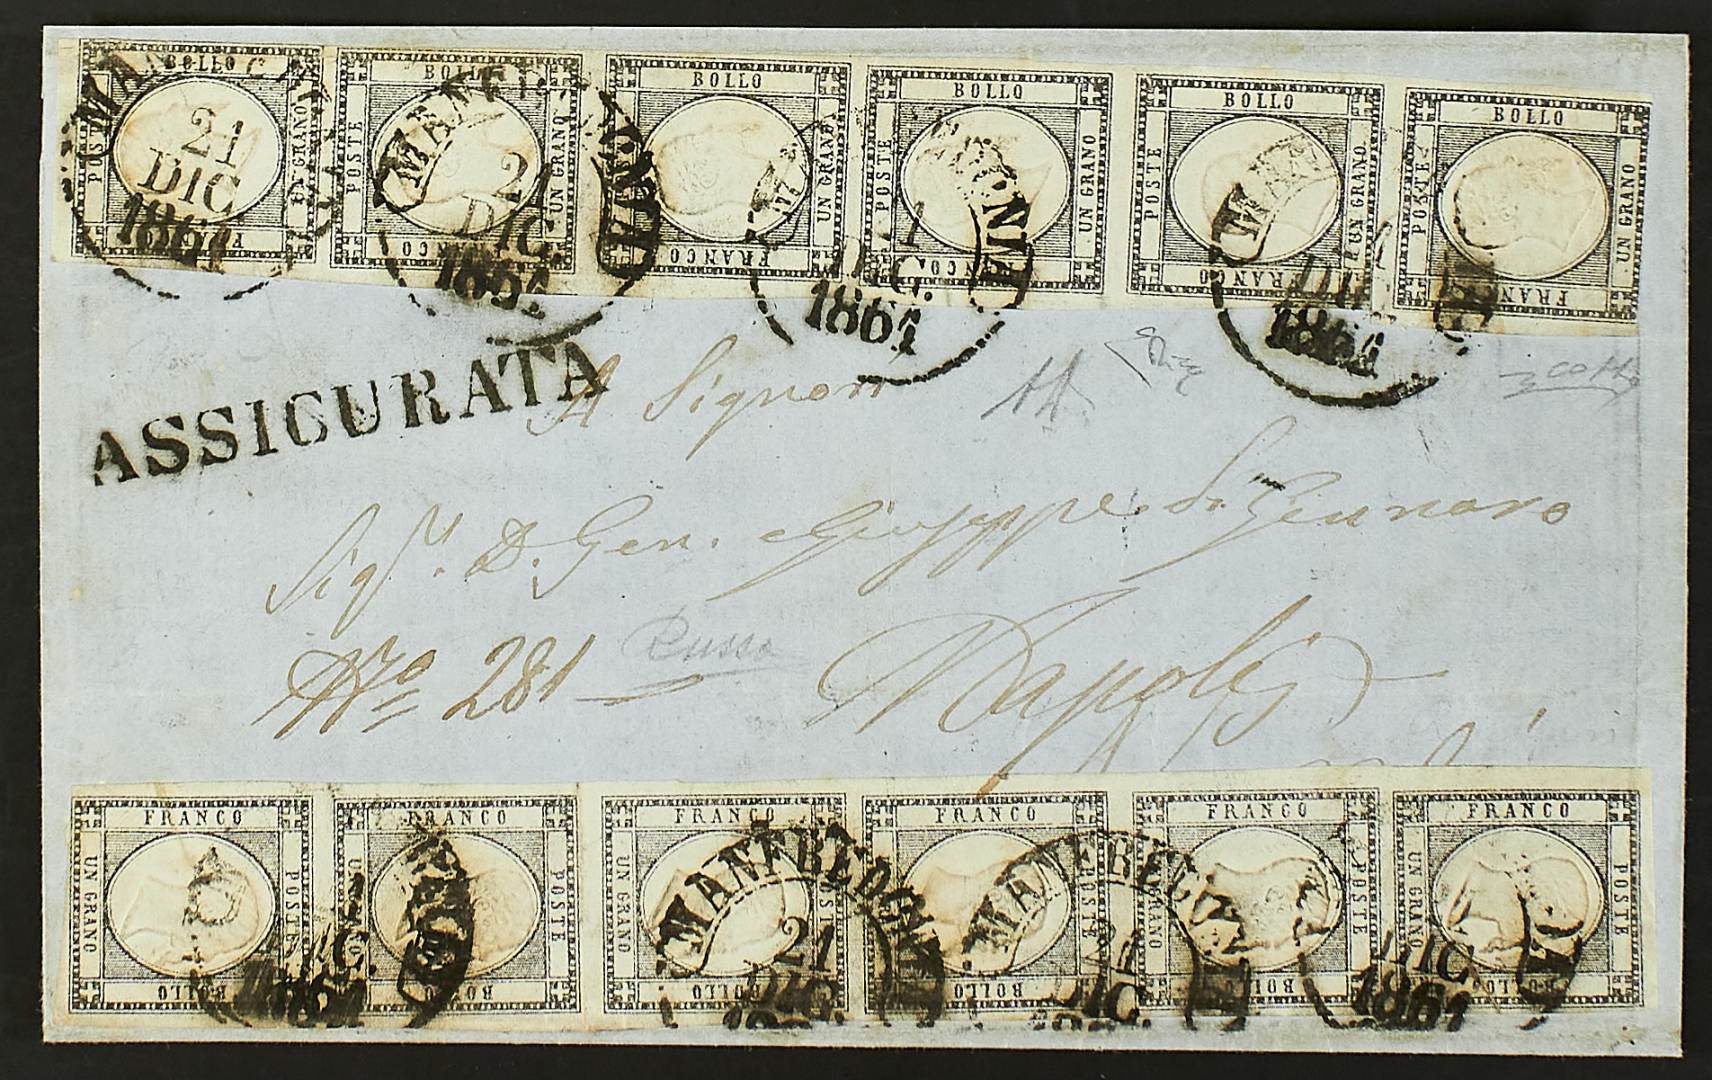 BOLLO POSTE UN GRANO FRANCO
BOLLO POSTE UN GRANO FRANCO
BOLLO POSTE UN GRANO FRANCO
BOLLO POSTE UN GRANO FRANCO
BOLLO POSTE UN GRANO FRANCO
BOLLO POSTE UN GRANO FRANCO
21
DIC
1861
21
DIC.
1861
1861
1861
ASSICURATA
A Signori
Sig.r D. Gen. Giuseppe di Gennaro
No 281
Russo
Napoli
FRANCO UN GRANO POSTE BOLLO
FRANCO UN GRANO POSTE BOLLO
FRANCO UN GRANO POSTE BOLLO
FRANCO UN GRANO POSTE BOLLO
FRANCO UN GRANO POSTE BOLLO
FRANCO UN GRANO POSTE BOLLO
MANFREDONIA
21
DIC.
MANFREDONIA
21
DIC.
DIC
1861